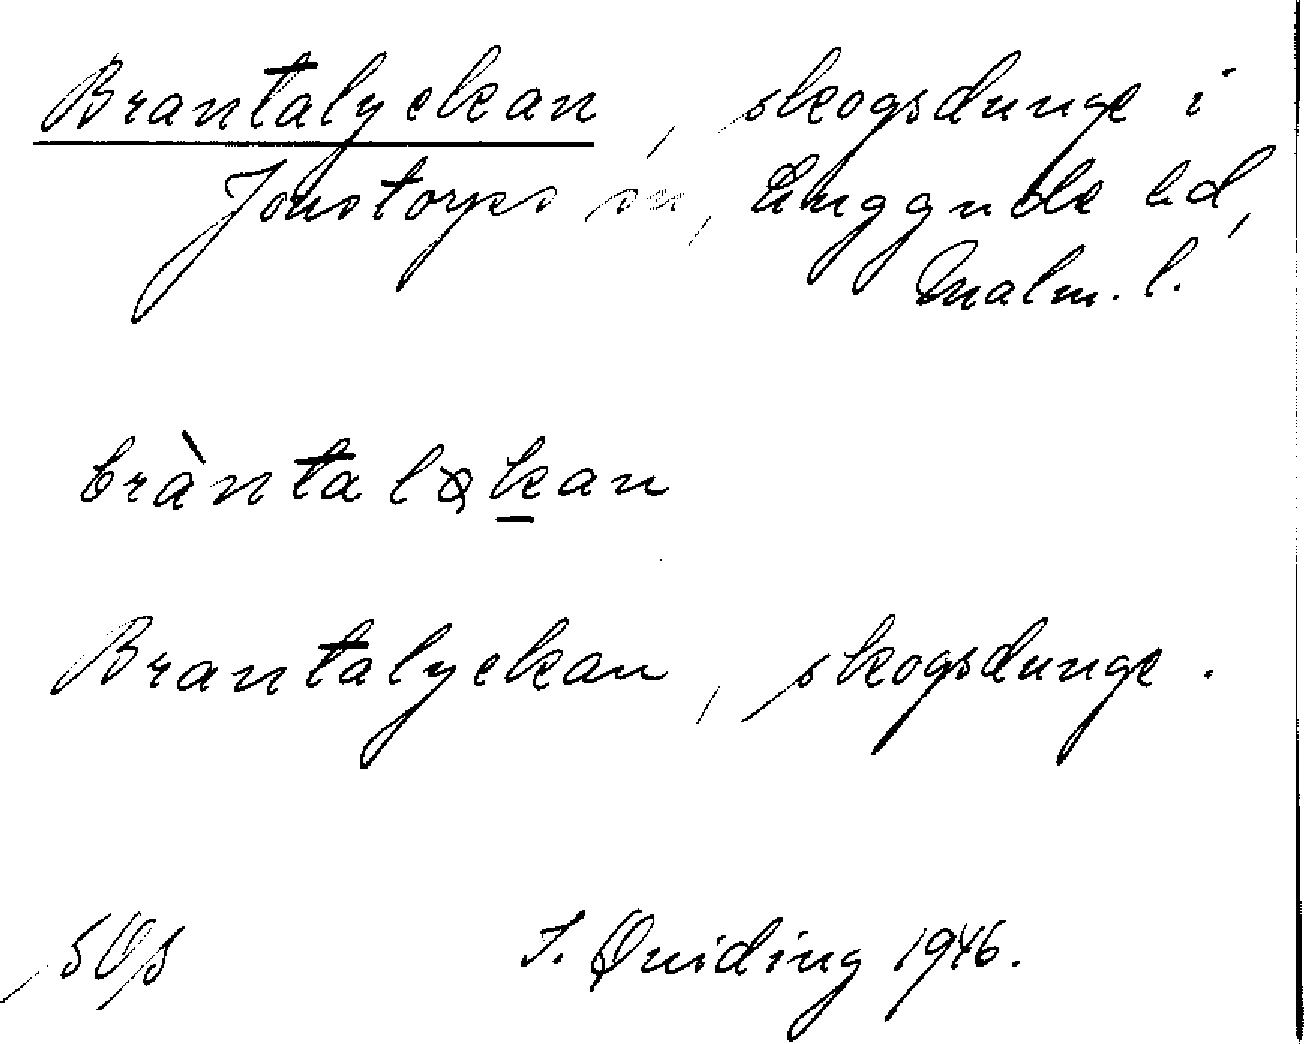 Brantalyckan, skogsdunge i
Jonstorps sn, Luggude hd,
Malm. l.
bràntaløkan
Brantalyckan, skogsdunge.
I. Quiding 1946.